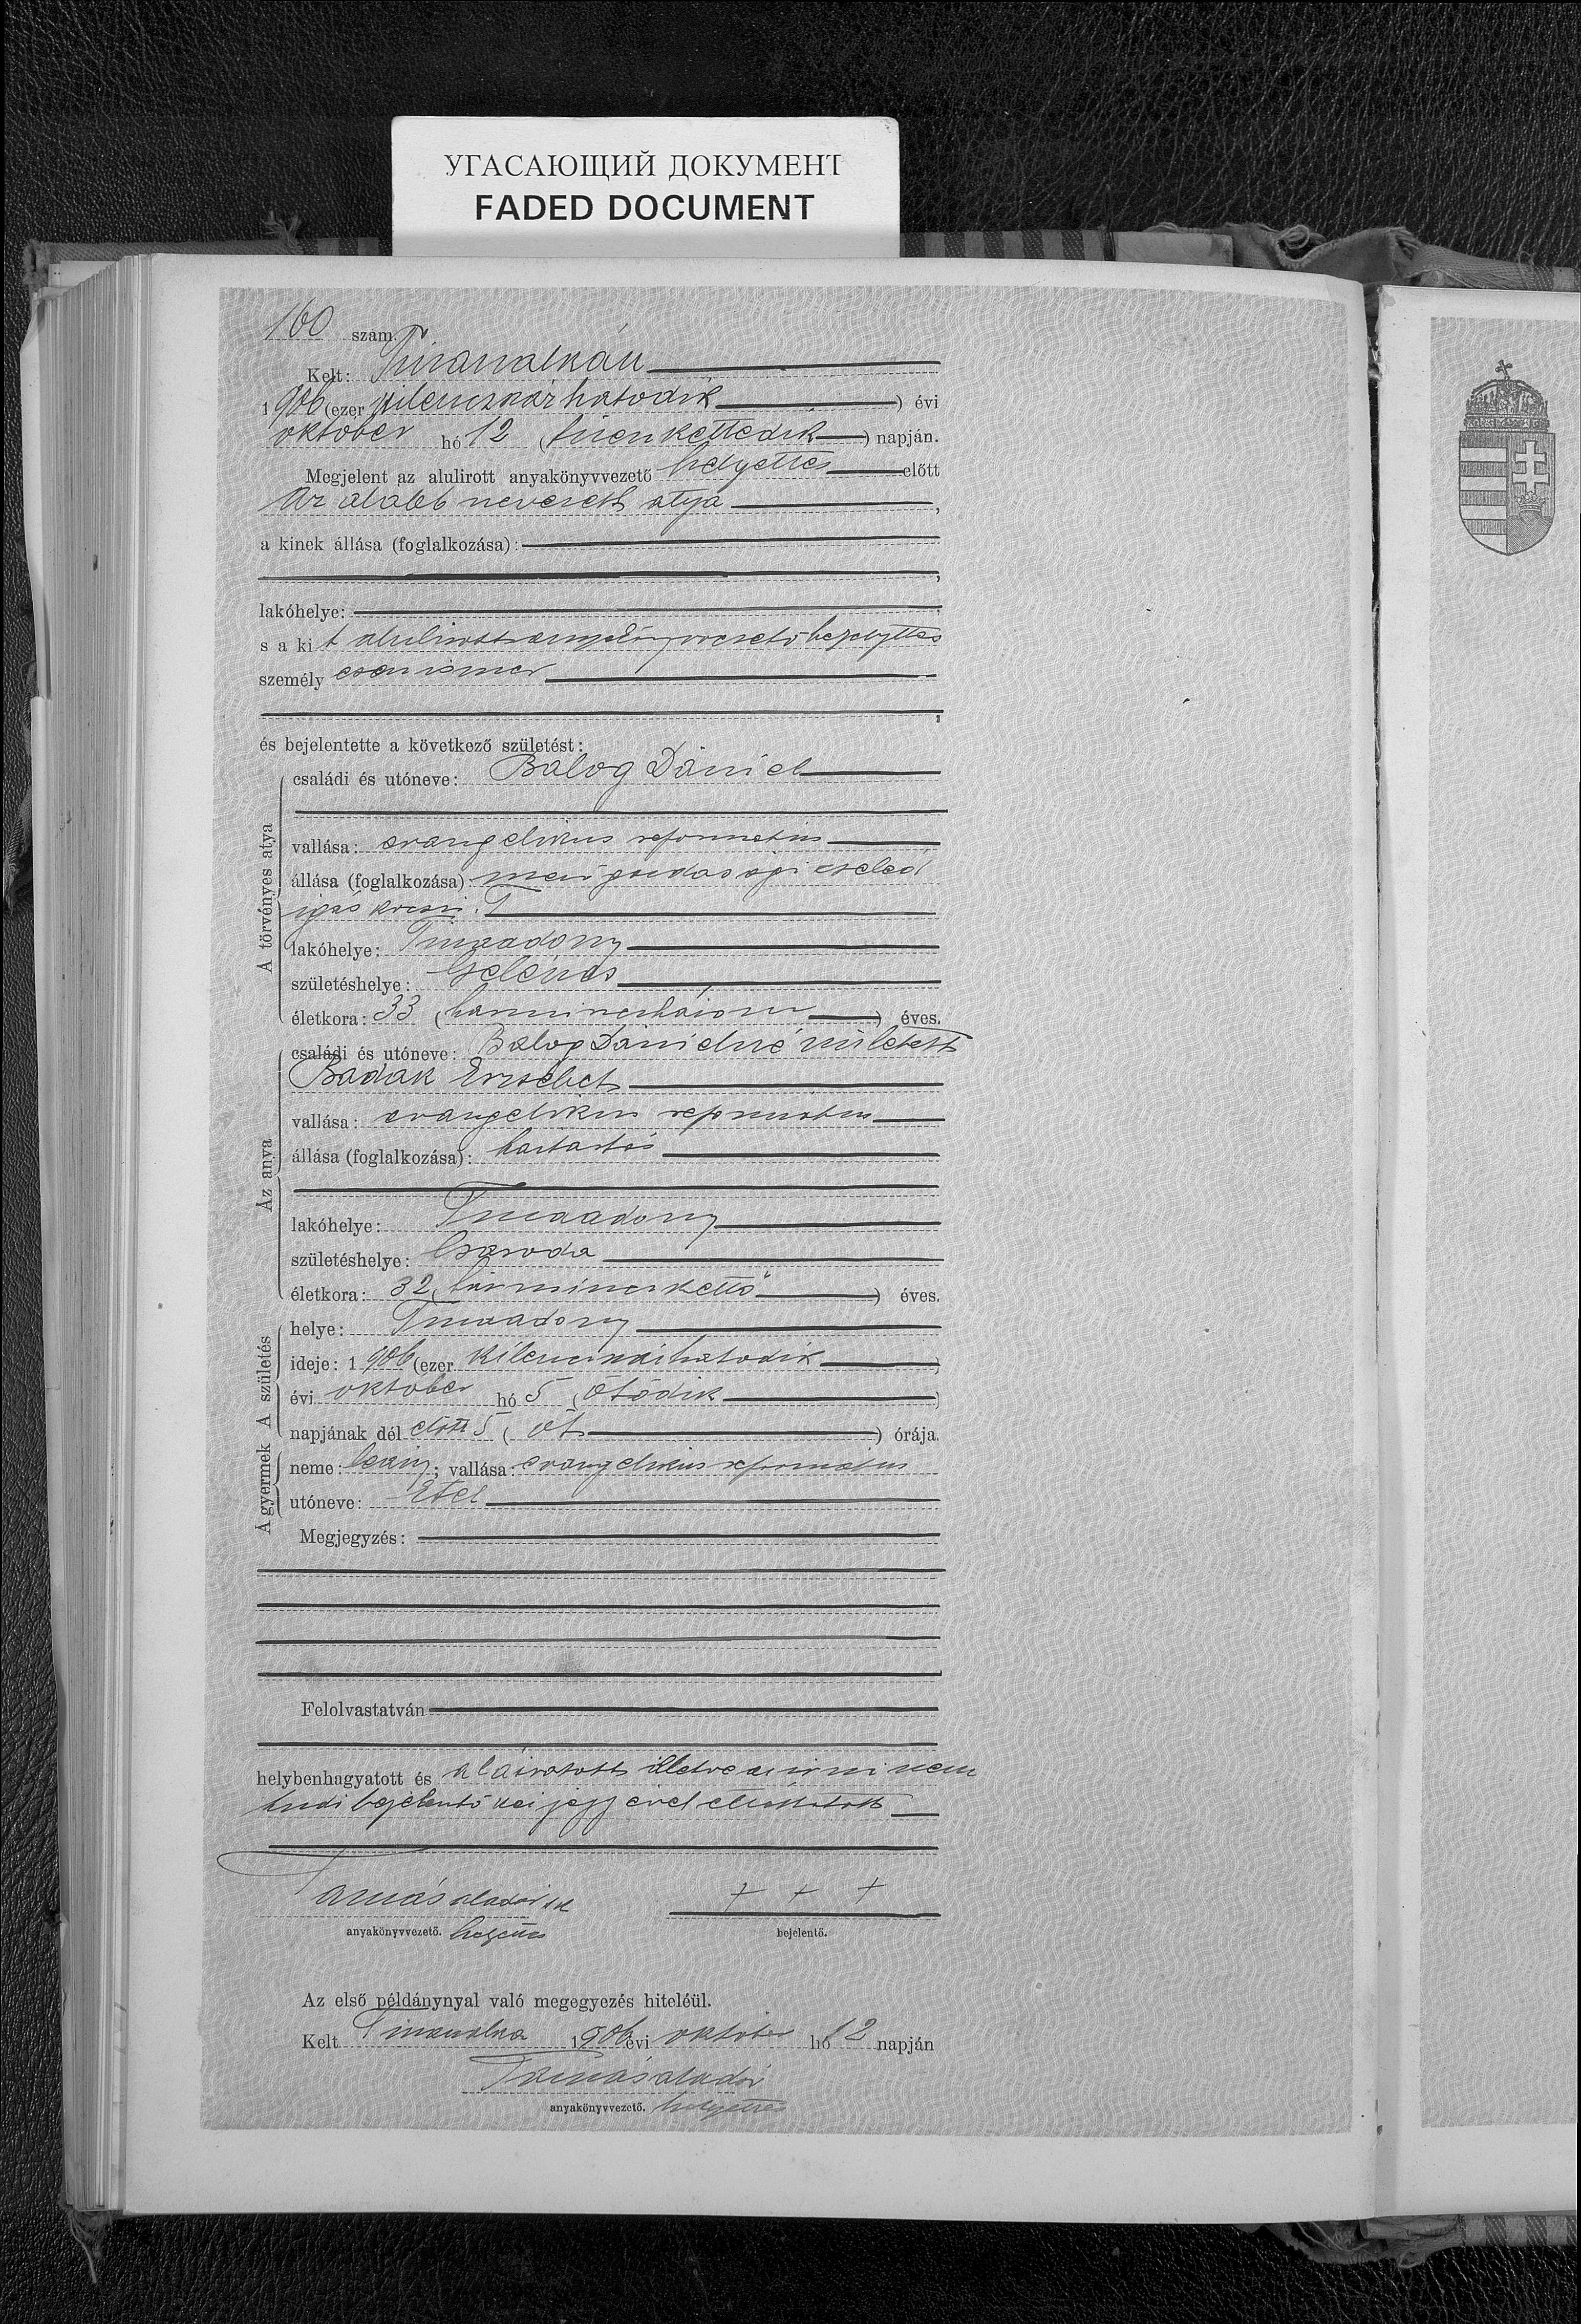 УГАСАЮЩИЙ ДОКУМЕНТ
FADED DOCUMENT
160 szám.
Kelt: Tiszavalkán
1906 (ezer kilenczszázhatodik) évi
október hó 12 (tizenkettedik) napján.
Megjelent az alulirott anyakönyvvezető helyettes előtt
az alább nevezett atya,
a kinek állása (foglalkozása):
lakóhelye:
s a kit alulirott anyakönyvvezető helyettes
személyesen ismer
és bejelentette a következő születést:
A törvényes atya
családi és utóneve: Balog Dániel
vallása: evangelikus református
állása (foglalkozása): mezőgazdasági cseléd
igás kocsis
lakóhelye: Tiszaadony
születéshelye: Gelénes
életkora: 33 (harminczhárom) éves.
Az anya
családi és utóneve: Balog Dánielné született
Badak Erzsébet
vallása: evangelikus református
állása (foglalkozása): háztartás
lakóhelye: Tiszaadony
születéshelye: Csaroda
életkora: 32 (harminczkettő) éves.
A születés
helye: Tiszaadony
ideje: 1906 (ezer kilenczszázhatodik)
évi október hó 5 (ötödik)
napjának dél előtt 5 (öt) órája.
A gyermek
neme: leány; vallása: evangelikus református
utóneve: Etel
Megjegyzés:
Felolvastatván
helybenhagyatott és aláiratott illetve az irni nem
tudó bejelentő kézjegyével elláttatott
Tamás Aladár sk
+ + +
anyakönyvvezető. helyettes
bejelentő.
Az első példánynyal való megegyezés hiteléül.
Kelt 1906 évi október hó 12 napján
Tamás Aladár
anyakönyvvezető. helyettes